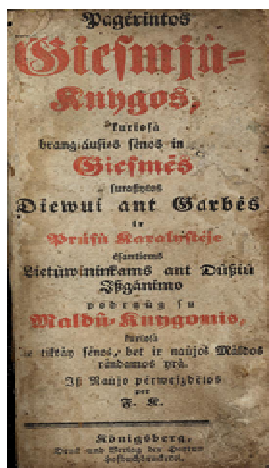 Pagérintos
Giesmjû-
Knygos,
kuriosà
brangiáusios sénos ir
Giesmës
suraßytos
Diewui ant Garbês
ir
Prúsû Karalystéje
ésantiems
Lietùwininkams ant Dûßiû
Ißgánimo
podraùg su
Maldû-Knygomis,
kuriosà
ne tiktáy sénos, bet ir naùjos Máldos
rándamos yrà.
Iß Naujo pérweizdétos
per
F. K.
Königsberg,
Druck und Verlag der